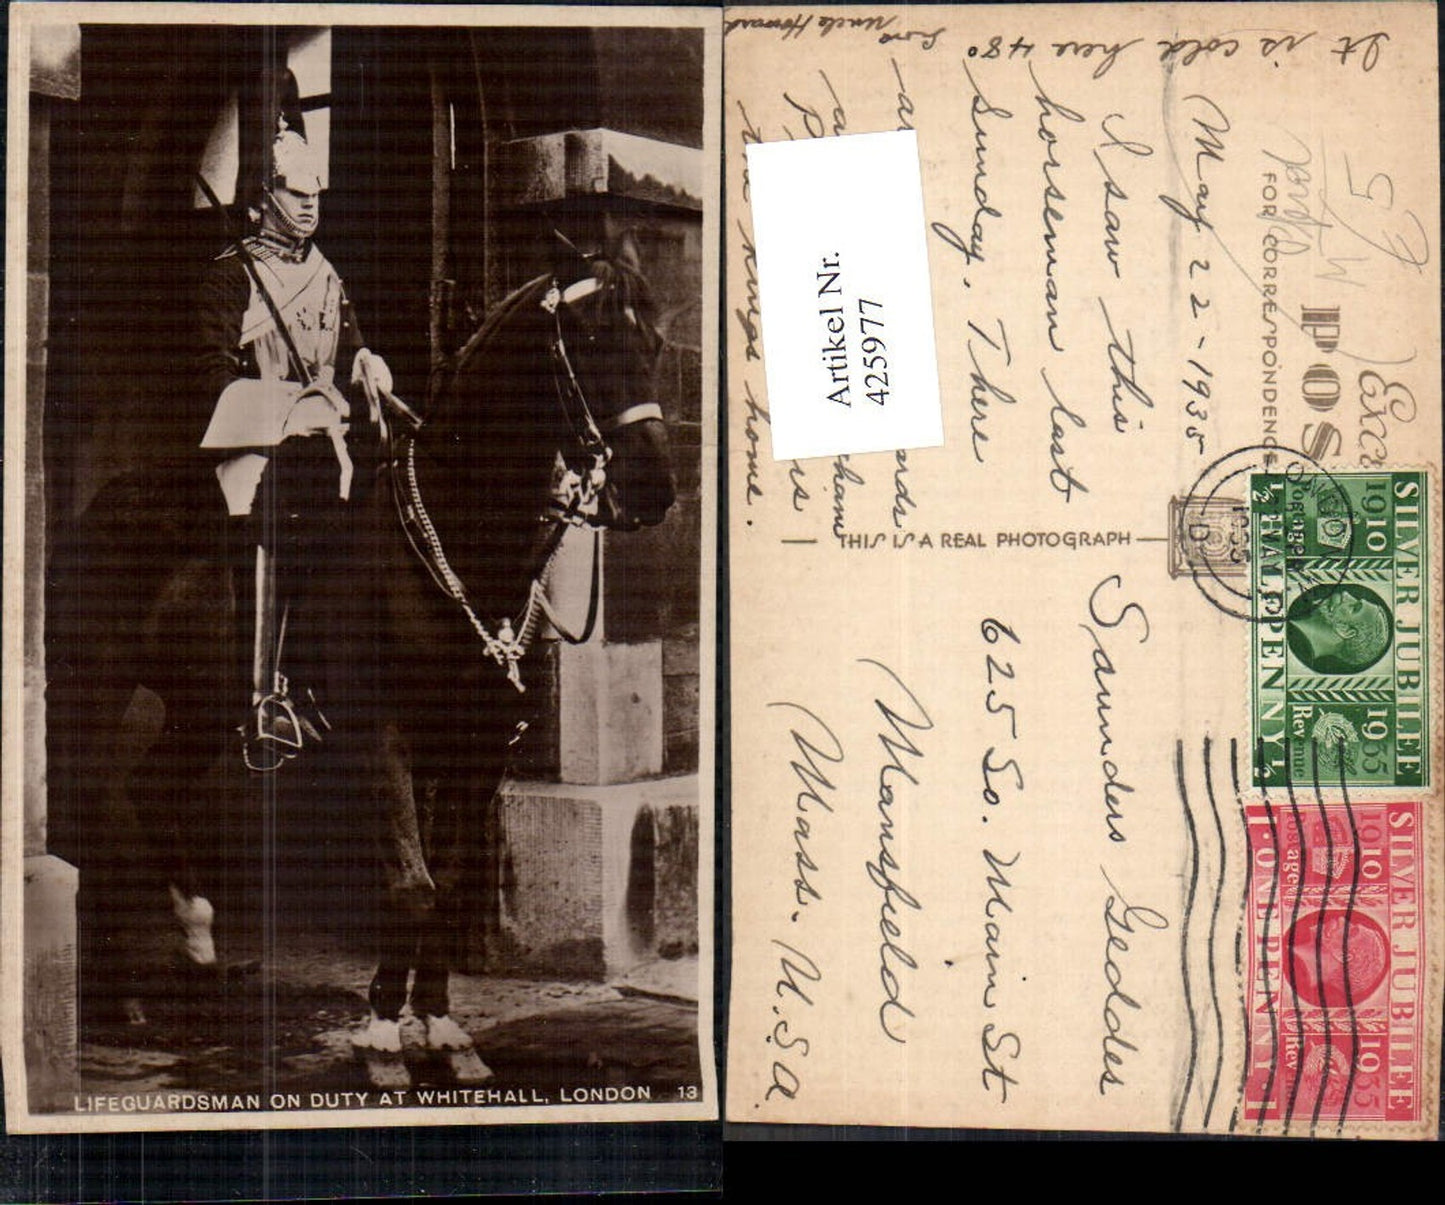 LIFEGUARDSMAN ON DUTY AT WHITEHALL, LONDON 13
It is cold here 48°
from Uncle Howard
May 22-1935
I saw this
horseman last
Sunday. There
ards
chang
is
the kings home.
Artikel Nr.
425977
POS
FOR CORRESPONDENCE
THIS IS A REAL PHOTOGRAPH
Saunders Geddes
625 So. Main St
Mansfield
Mass. U.S.A.
LONDON
1935
SILVER JUBILEE
1910 1935
Postage Revenue
½ HALFPENNY ½
SILVER JUBILEE
1910 1935
Postage Revenue
1·ONE PENNY·1